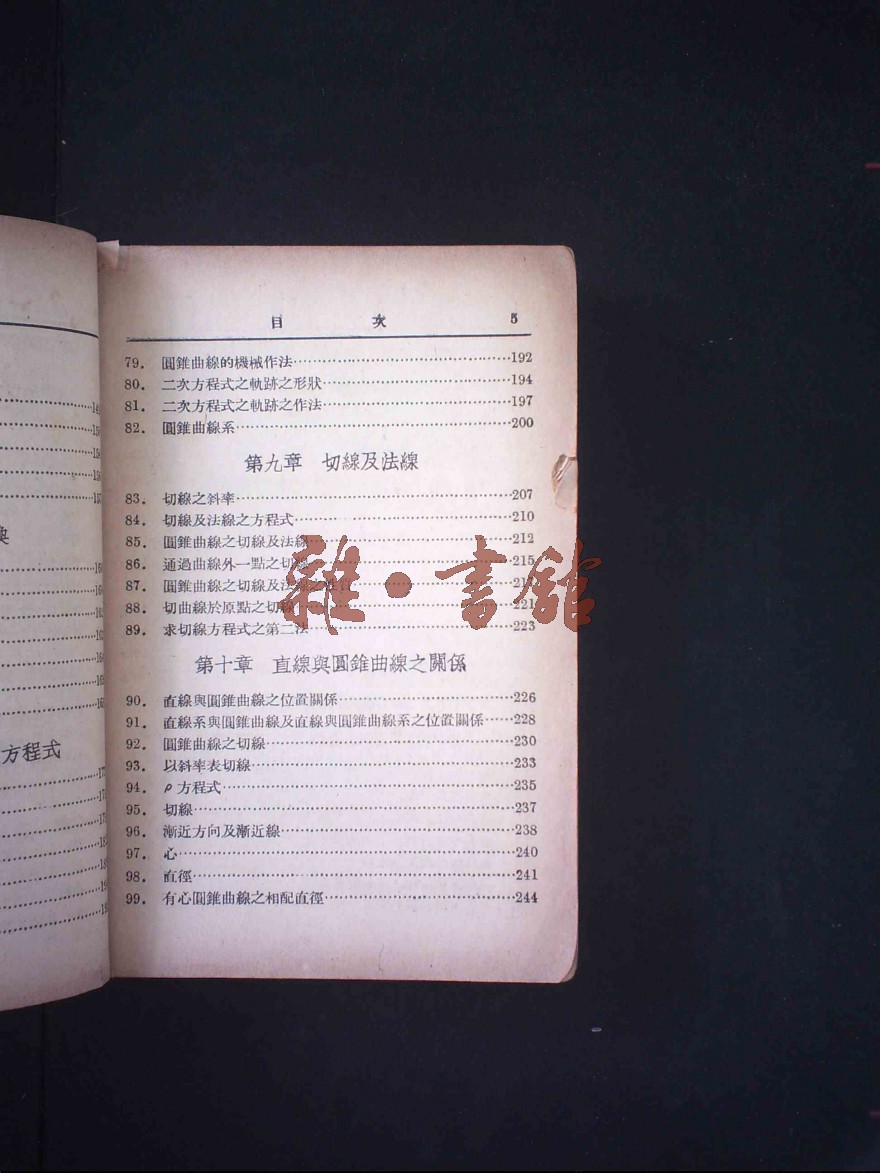 目 次 5
79. 圓錐曲線的機械作法…192
80. 二次方程式之軌跡之形狀…194
81. 二次方程式之軌跡之作法…197
82. 圓錐曲線系…200
第九章 切線及法線
83. 切線之斜率…207
84. 切線及法線之方程式…210
85. 圓錐曲線之切線及法線…212
86. 通過曲線外一點之切線…215
87. 圓錐曲線之切線及法線之性質
88. 切曲線於原點之切線…221
89. 求切線方程式之第二法…223
雜·書館
第十章 直線與圓錐曲線之關係
90. 直線與圓錐曲線之位置關係…226
91. 直線系與圓錐曲線及直線與圓錐曲線系之位置關係…228
92. 圓錐曲線之切線…230
93. 以斜率表切線…233
94. ρ方程式…235
95. 切線…237
96. 漸近方向及漸近線…238
97. 心…240
98. 直徑…241
99. 有心圓錐曲線之相配直徑…244
方程式